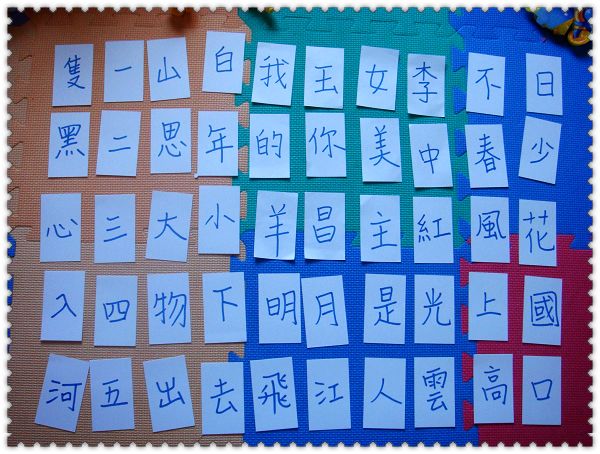 隻一山白我玉女李不日
黑二思年的你美中春少
心三大小羊昌主紅風花
入四物下明月是光上國
河五出去飛江人雲高口